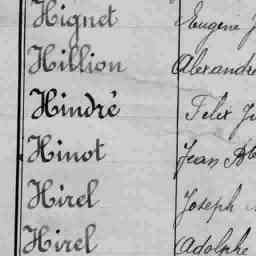 Hignet Eugène
Hillion Alexandre
Hindré Félix
Hinot Jean Bte
Hirel Joseph
Hirel Adolphe